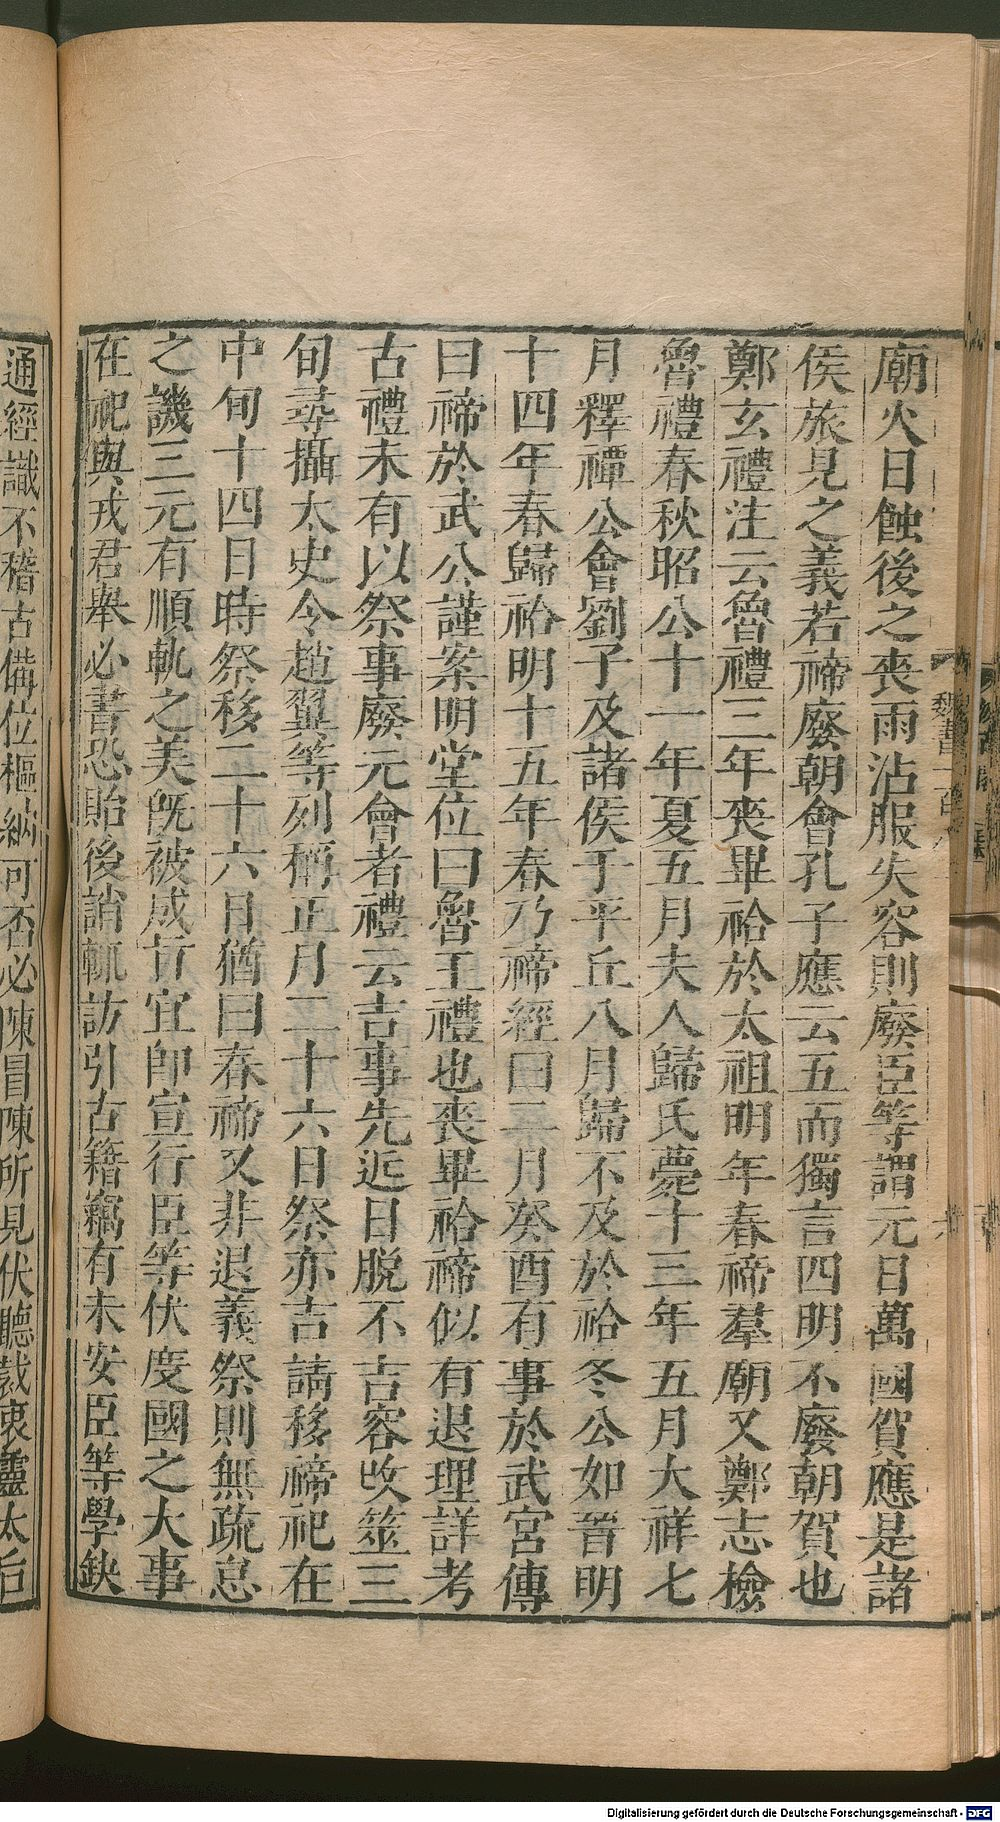 廟火日蝕後之喪雨沾服失容則廢臣等謂元日萬國賀應是諸
侯旅見之義若禘廢朝會孔子應云五而獨言四明不廢朝賀也
鄭玄禮注云魯禮三年喪畢祫於太祖明年春禘羣廟又鄭志檢
魯禮春秋昭公十一年夏五月夫人歸氏薨十三年五月大祥七
月釋禫公會劉子及諸侯于平丘八月歸不及於祫冬公如晉明
十四年春歸祫明十五年春乃禘經曰二月癸酉有事於武宮傳
曰禘於武公謹案明堂位曰魯王禮也喪畢祫禘似有退理詳考
古禮未有以祭事廢元會者禮云吉事先近日脫不吉容改筮三
旬尋攝太史令趙翼等列稱正月二十六日祭亦吉請移禘祀在
中旬十四日時祭移二十六日猶曰春禘又非退義祭則無疏怠
之譏三元有順軌之美既被成旨宜即宣行臣等伏度國之大事
在祀與戎君舉必書恐貽後誚輒訪引古籍竊有未安臣等學缺
通經識不稽古備位樞納可否必陳冒陳所見伏聽裁衷靈太后
魏書一百八
Digitalisierung gefördert durch die Deutsche Forschungsgemeinschaft - DFG